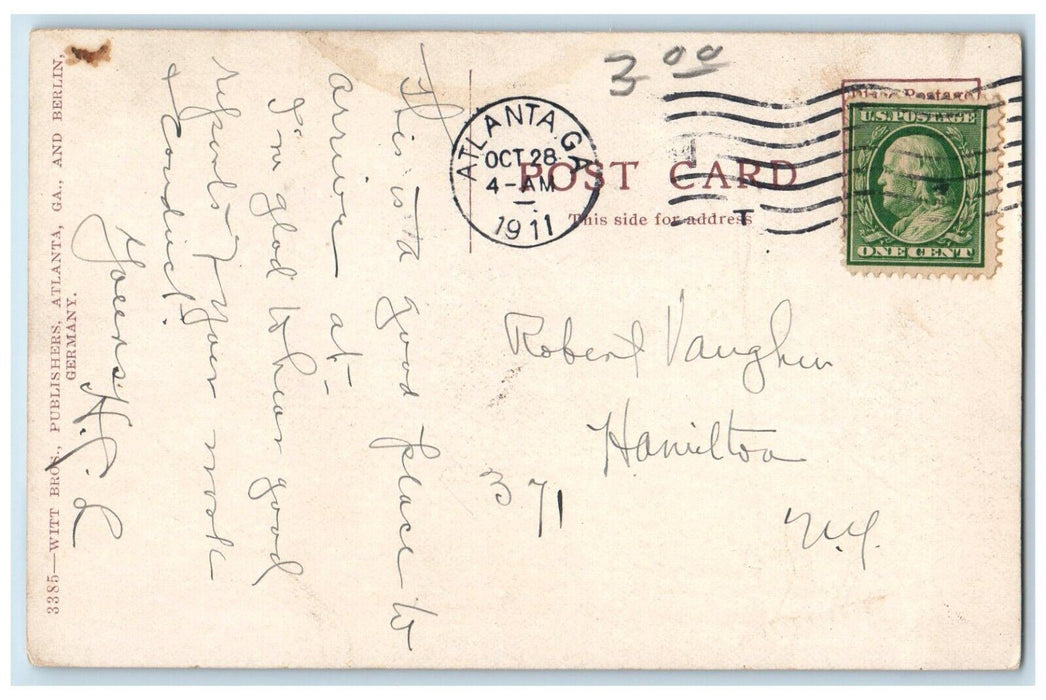 3 00
Place Postage
U.S. POSTAGE
ONE CENT
ATLANTA, GA.
OCT 28
4-AM
1911
T
POST CARD
This side for address
This is a good place to
arrive at-
I'm glad to hear good
reports of your work
& conduct.
Yours H. J. L
Robert Vaughn
Hamilton
B 71
N.Y.
3385—WITT BROS., PUBLISHERS, ATLANTA, GA., AND BERLIN,
GERMANY.